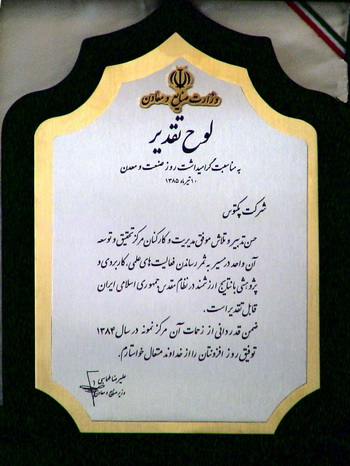 وزارت صنایع و معادن
لوح تقدیر
به مناسبت گرامیداشت روز صنعت و معدن
۱۰ تیرماه ۱۳۸۵
شرکت پکتوس
حسن تدبیر و تلاش موفق مدیریت و کارکنان مرکز تحقیق و توسعه
آن واحد در مسیر به ثمر رساندن فعالیت‌های علمی، کاربردی و
پژوهشی با نتایج ارزشمند در نظام مقدس جمهوری اسلامی ایران
قابل تقدیر است.
ضمن قدردانی از زحمات آن مرکز نمونه در سال ۱۳۸۴
توفیق روز افزونتان را از خداوند متعال خواستارم.
علیرضا طهماسبی
وزیر صنایع و معادن